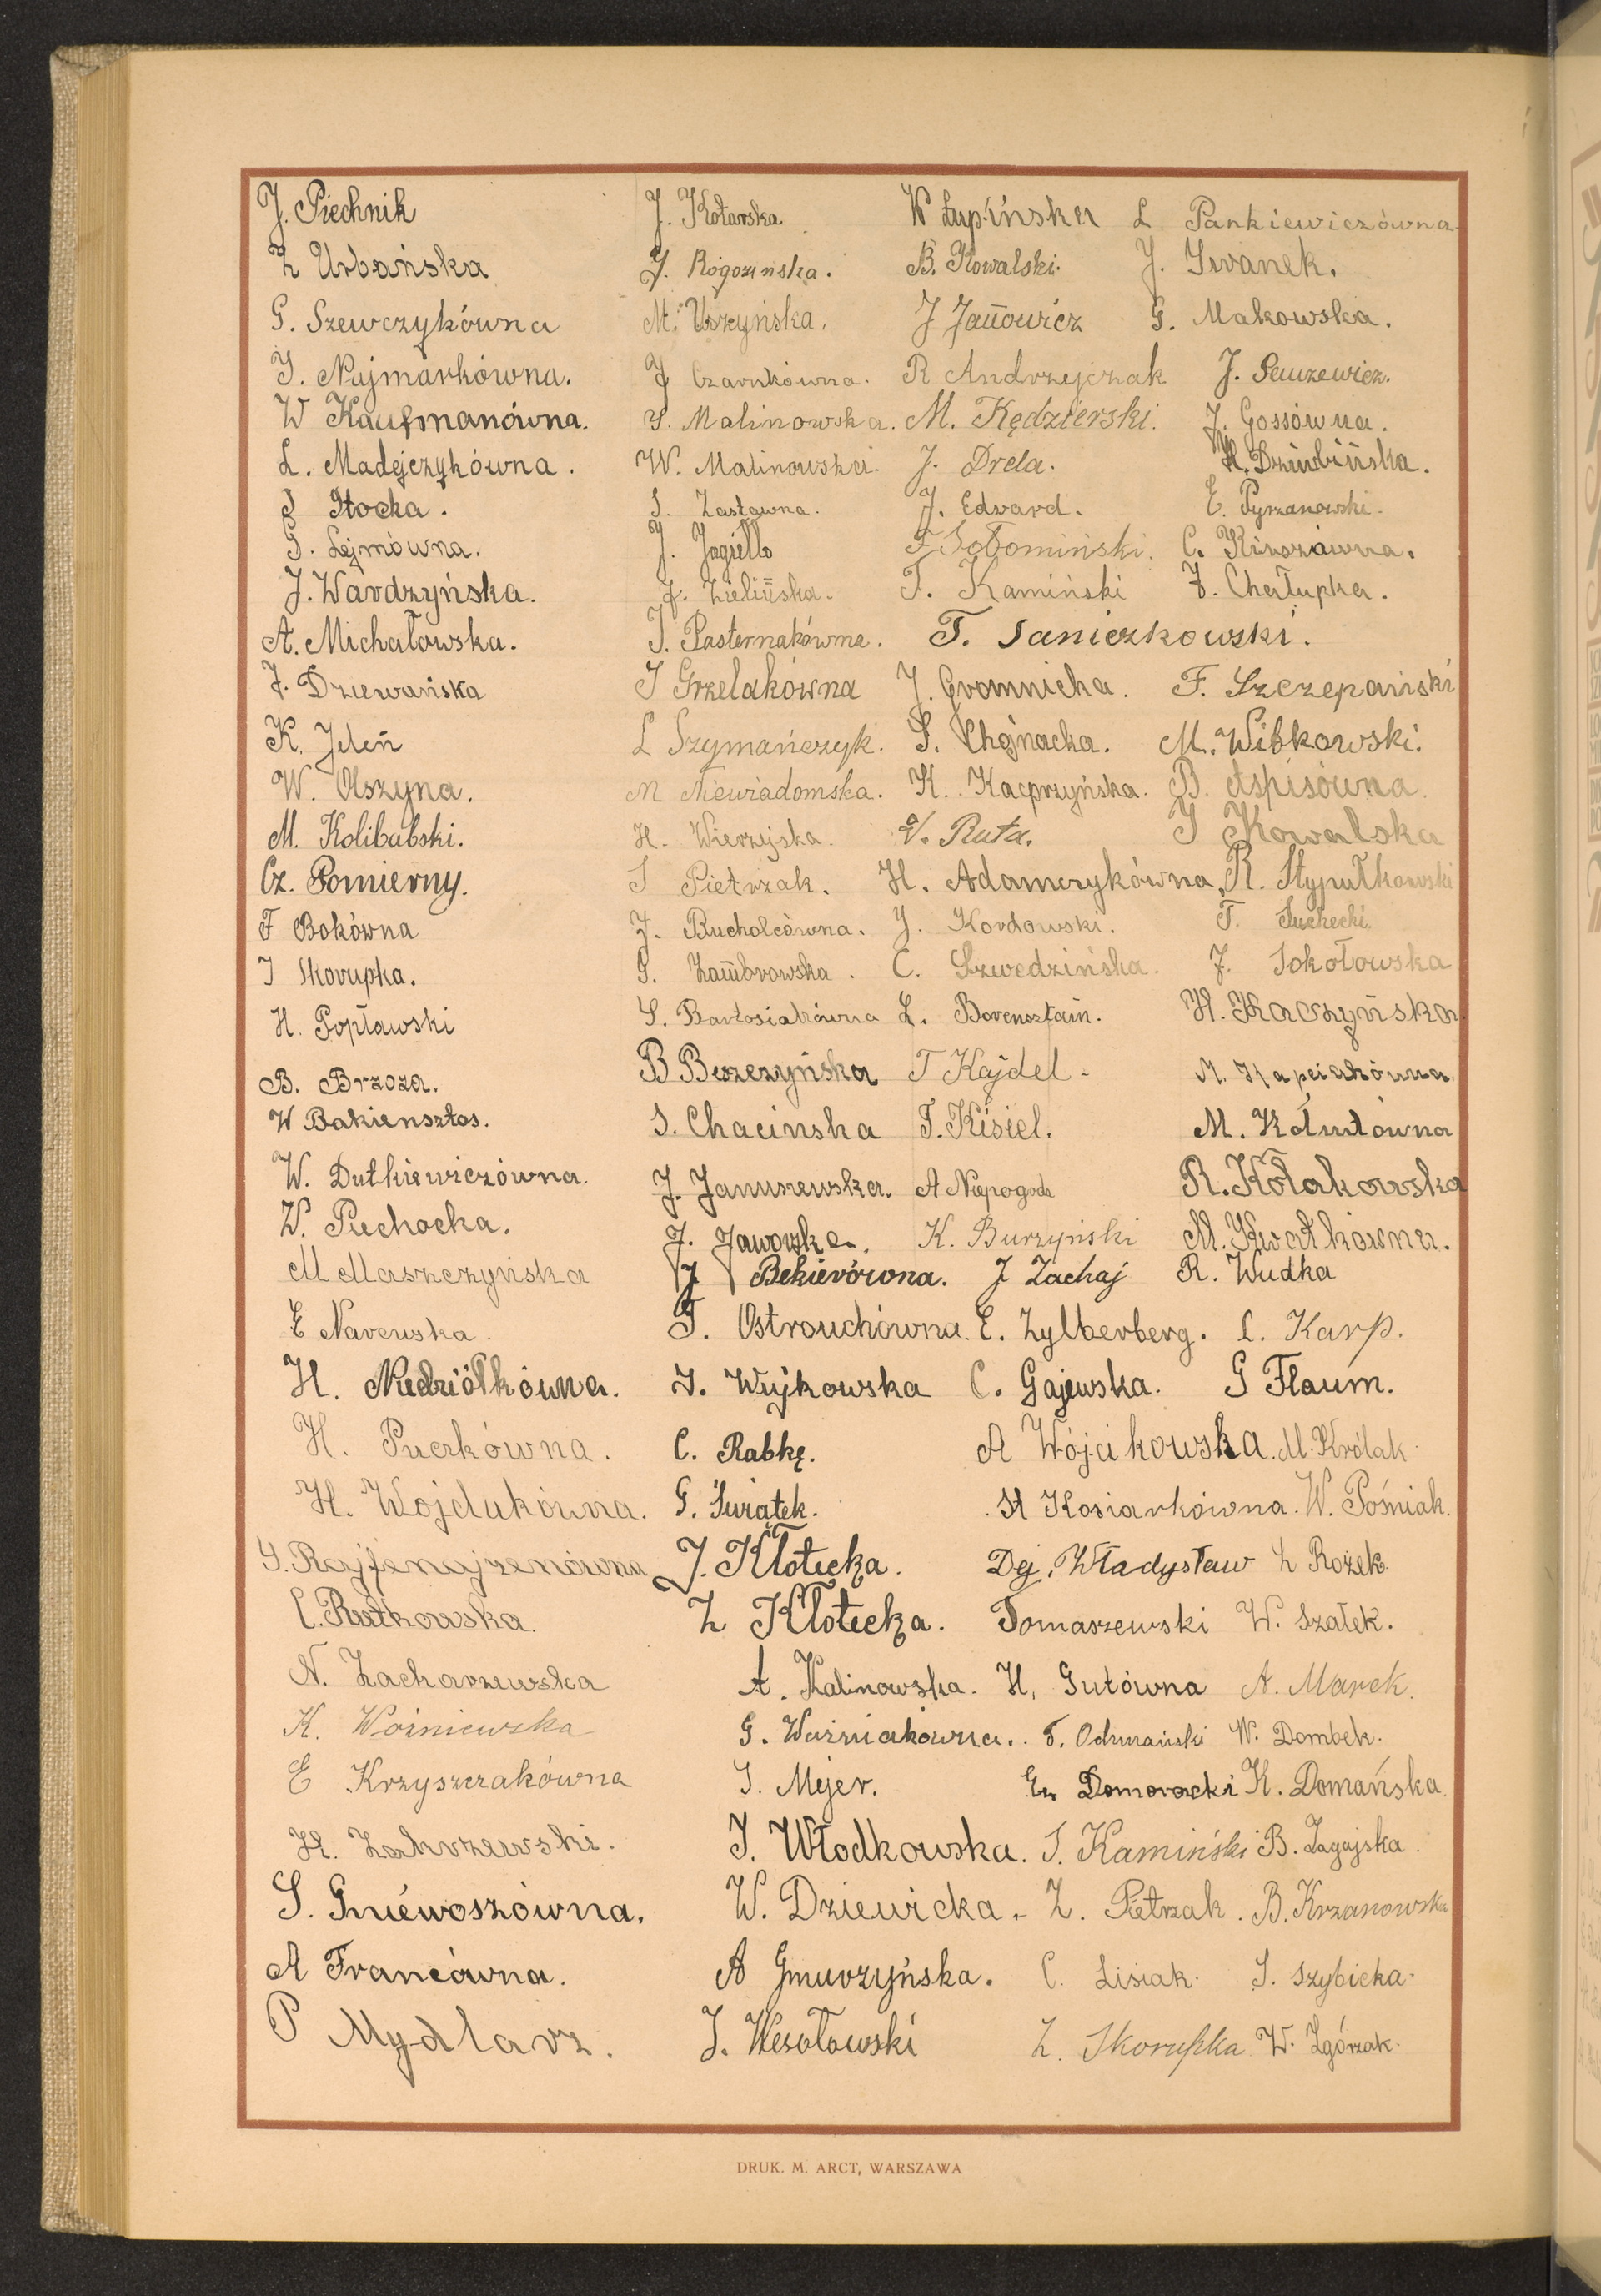 J. Piechnik J. Kotarska W Łupińska L Pankiewiczówna
Z Urbańska J. Rogozińska. B. Kowalski. J. Iwanek.
G. Szewczykówna M. Uszyńska. J Janowicz G. Makowska.
I. Najmarkówna. J Czarnkówna. R Andrzejczak J.
W Kaufmanówna. S. Malinowska. M. Kędzierski. J. Gossówna.
L. Madejczykówna. W. Malinowska. J. Drela. H. Dziubińska.
I Stocka. S. Zastawna. J. Edward. E. Pyrzanowski.
G. Lejmówna. J. Jagiełło F Sołomiński. C. Kirszówna.
J. Wardzyńska. J. Zielińska. T. Kamiński F. Chałupka.
A. Michałowska. J. Pasternakówna. T. Janiczkowski.
J. Dziewańska I Grzelakówna J. Gromnicka. F. Szczepański
K. Jeleń L Szymańczyk. S. Chojnacka. M. Witkowski.
W. Olszyna. M Niewiadomska. K. Kacprzyńska. B. Aspisówna.
M. Kolibabski. H. Wierzyjska. W. Ruta. I Kowalska
Cz. Pomierny. I Pietrzak. H. Adamczykówna, R. Stypułkowski
F Bokówna J. Bucholcówna. J. Kordowski. T. Suchecki
I Skorupka. G. Zambrowska. C. Szwedzińska. J. Sokołowska
H. Popławski S. Bartosiakówna L. Borensztain. H. Kaczyńska.
B. Brzoza. B Buszczyńska T Kajdel. M.
W Bakiensztos. S. Chacinska F. Kisiel. M.
W. Dutkiewiczówna. J. Januszewska. A Niepogoda R. Kołakowska
W. Piechocka. J. Jaworska. K. Burzyński M. Kwatkówna.
M Maszczyńska J Bekierówna. J Zachaj R. Wudka
E Narewska. F. Ostrouchówna. E. Zylberberg. L. Karp.
H. Niedziółkówna. I. Wujkowska C. Gajewska. G Flaum.
H. Puczkówna. C. Rabkę. A Wójcikowska. M. Królak.
H. Wojdukówna. G. Świątek. St Kosiarkówna. W. Pośniak.
S. Rajfenajzenówna J. Kłotecka. Dej. Władysław Z Rożek.
C. Rutkowska. Z Kłotecka. Tomaszewski W. Szałek.
N. Zacharzewska A. Kalinowska. H, Gutówna A. Marek.
K. Woźniewska G. Woźniakówna. F. W. Dombek.
E Krzyszczakówna I. Mejer. Domoracki K. Domańska.
H. Zakrzewski. I. Włodkowska. S. Kamiński B. Zagajska.
S. Gniewoszówna. W. Dziewicka. Z. Pietrzak. B. Krzanowska
A Francówna. A Gmurzyńska. C. Lisiak. S. Szybicka.
P Mydlarz. J. Wesołowski Z. Skorupka W. Zgórzak.
DRUK. M. ARCT, WARSZAWA